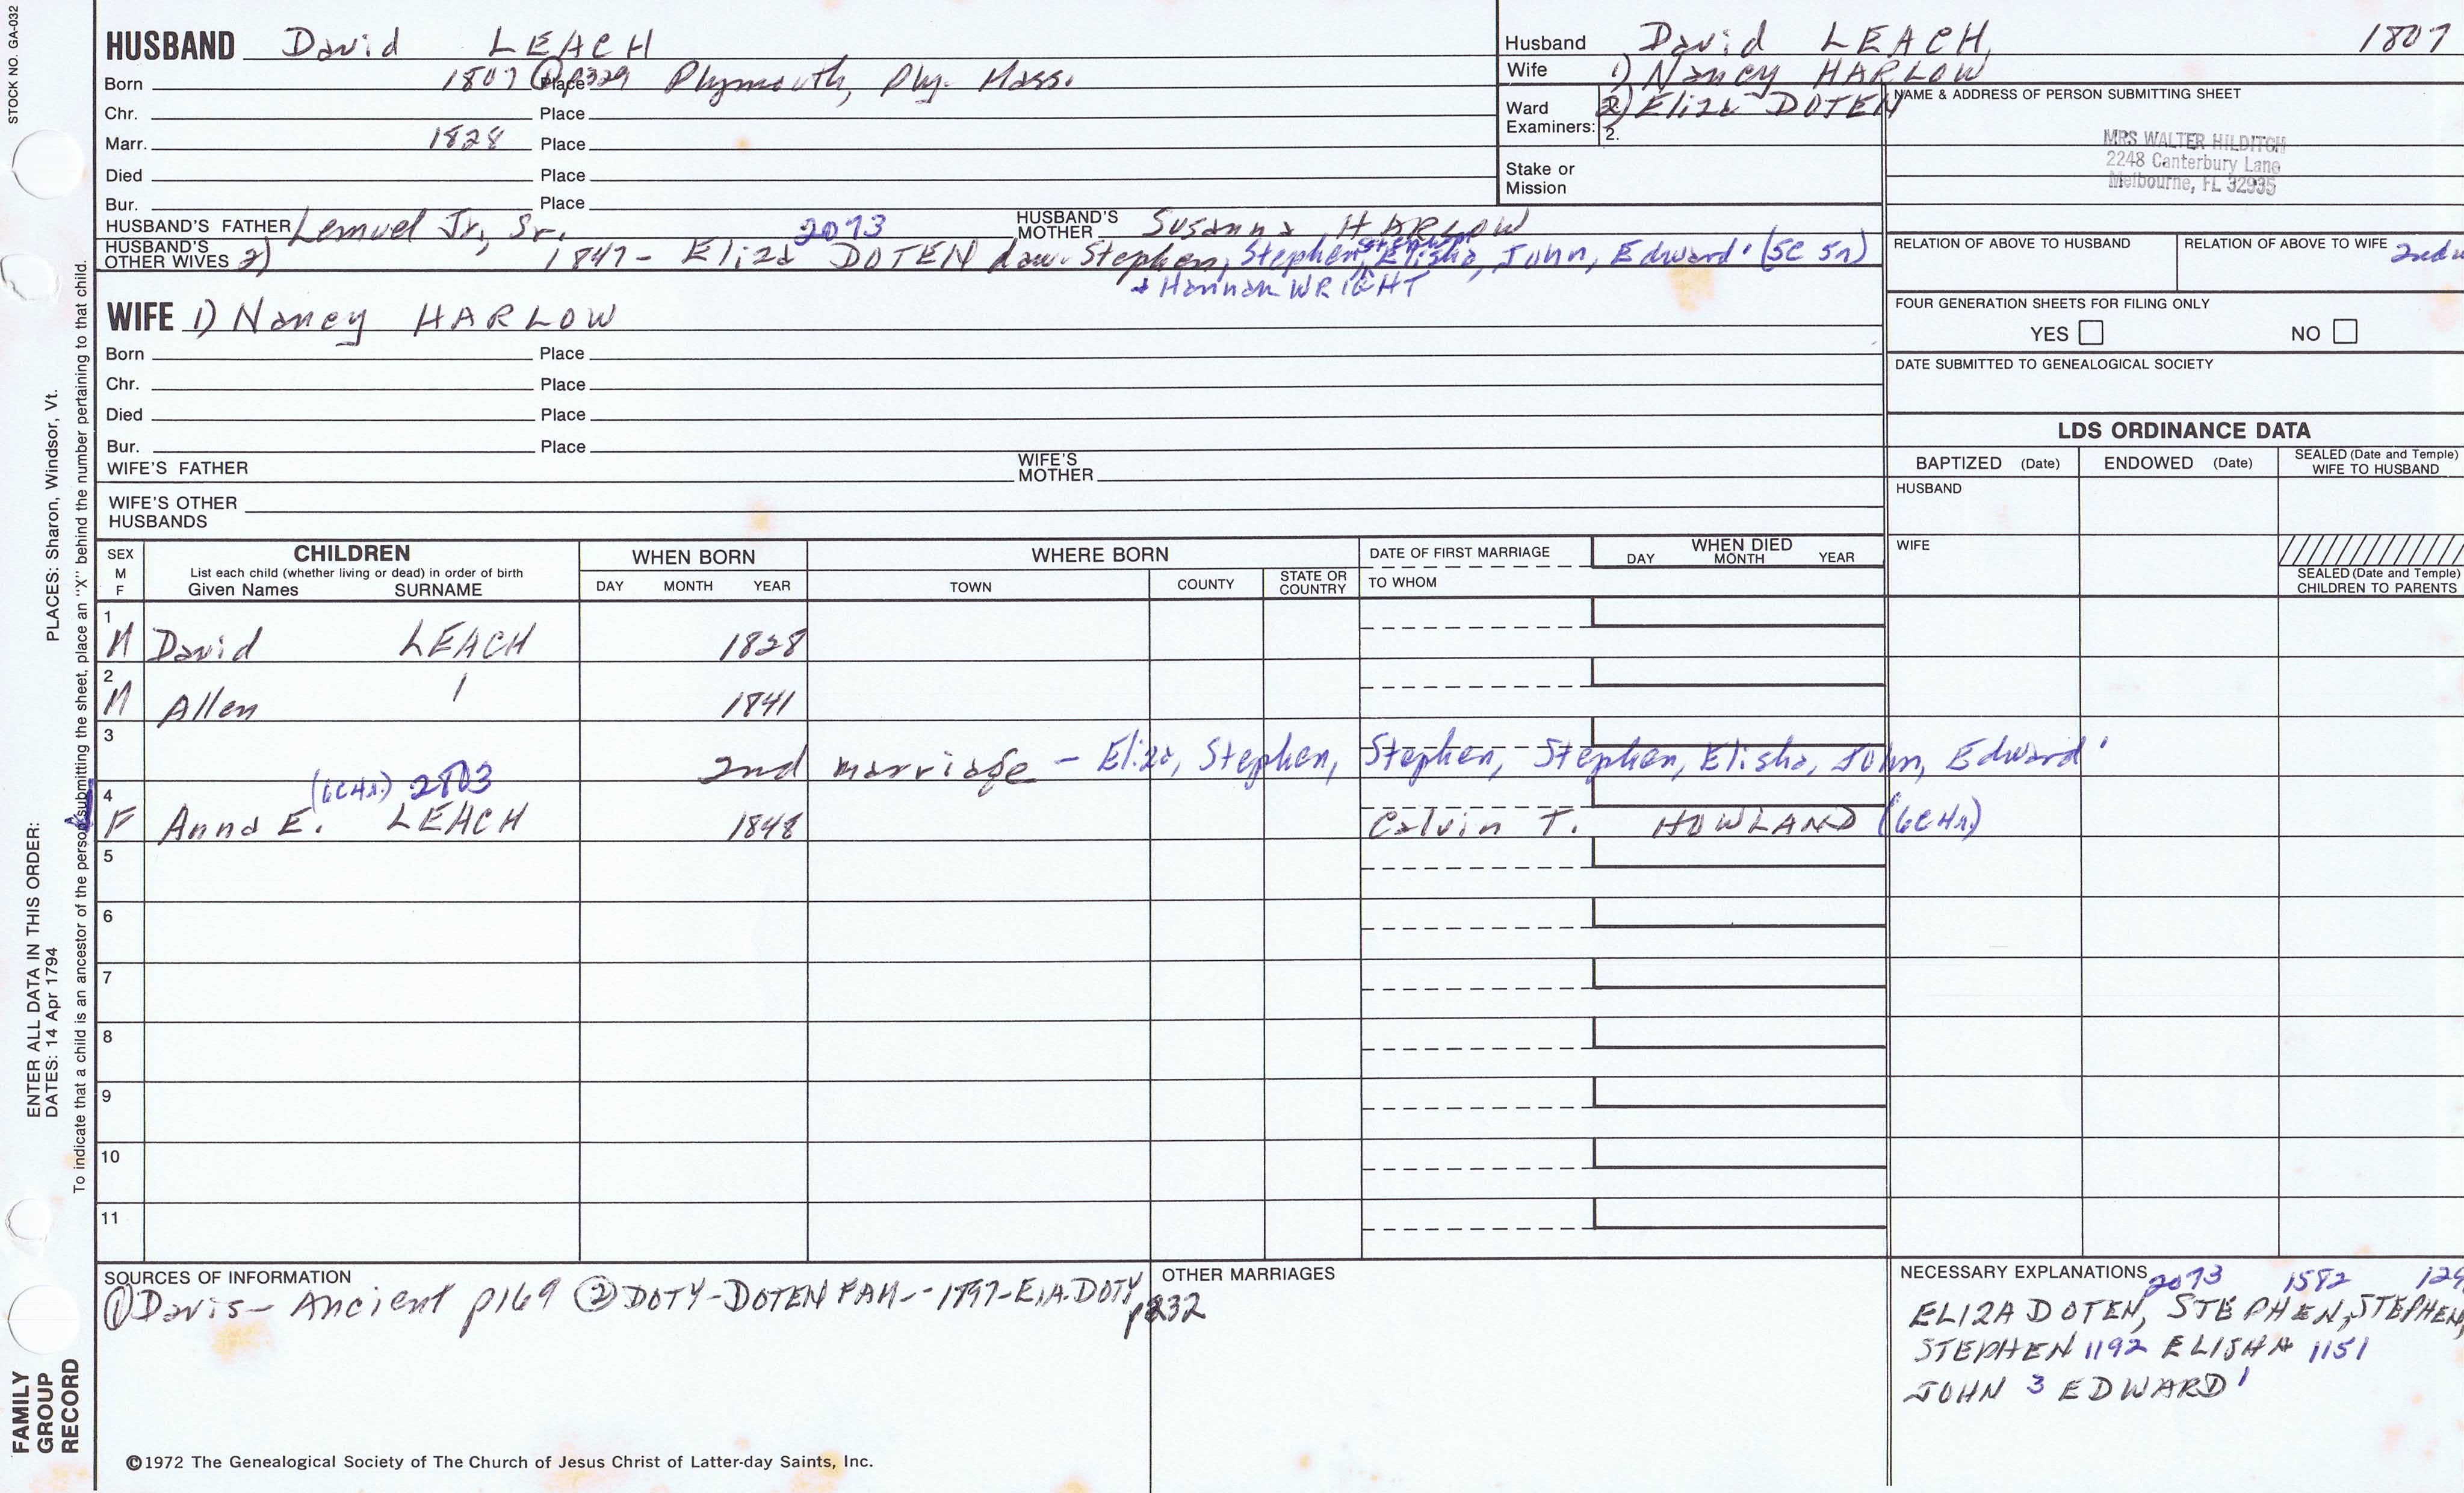 STOCK NO. GA-032
HUSBAND David LEACH
Born 1807 Place Plymouth, Ply. Mass.
Chr. Place
Marr. 1828 Place
Died Place
Bur. Place
HUSBAND'S FATHER Lemuel Jr., Sr. HUSBAND'S MOTHER Susanna HARLOW
2073
HUSBAND'S OTHER WIVES 2) 1847 - Eliza DOTEN dau. Stephen, Stephen, Stephen, Elisha, John, Edward' (5C 5r)
+ Hannah WRIGHT
WIFE 1) Nancy HARLOW
Born Place
Chr. Place
Died Place
Bur. Place
WIFE'S FATHER WIFE'S MOTHER
WIFE'S OTHER HUSBANDS
Husband David LEACH 1807
Wife 1) Nancy HARLOW
2) Eliza DOTEN
Ward Examiners: 2.
Stake or Mission
NAME & ADDRESS OF PERSON SUBMITTING SHEET
MRS WALTER HILDITCH
2248 Canterbury Lane
Melbourne, FL 32935
RELATION OF ABOVE TO HUSBAND RELATION OF ABOVE TO WIFE 2nd
FOUR GENERATION SHEETS FOR FILING ONLY
YES NO
DATE SUBMITTED TO GENEALOGICAL SOCIETY
LDS ORDINANCE DATA
BAPTIZED (Date) ENDOWED (Date) SEALED (Date and Temple) WIFE TO HUSBAND
HUSBAND
WIFE
SEALED (Date and Temple) CHILDREN TO PARENTS
SEX M F
CHILDREN
List each child (whether living or dead) in order of birth
Given Names SURNAME
WHEN BORN
DAY MONTH YEAR
WHERE BORN
TOWN COUNTY STATE OR COUNTRY
DATE OF FIRST MARRIAGE
TO WHOM
WHEN DIED
DAY MONTH YEAR
1 M David LEACH 1828
2 M Allen 1841
3 2nd marriage - Eliza, Stephen, Stephen, Stephen, Elisha, John, Edward'
(6C4r) 2803
4 F Anna E. LEACH 1848 Calvin T. HOWLAND (6C4r)
5
6
7
8
9
10
11
SOURCES OF INFORMATION
① Davis - Ancient p169 ② DOTY-DOTEN FAM-- 1897-E.A.DOTY
p232
OTHER MARRIAGES
NECESSARY EXPLANATIONS 2073 1582
ELIZA DOTEN, STEPHEN, STEPHEN,
STEPHEN 1192 ELISHA 1151
JOHN 3 EDWARD'
©1972 The Genealogical Society of The Church of Jesus Christ of Latter-day Saints, Inc.
ENTER ALL DATA IN THIS ORDER:
DATES: 14 Apr 1794 PLACES: Sharon, Windsor, Vt.
To indicate that a child is an ancestor of the person submitting the sheet, place an "X" behind the number pertaining to that child.
FAMILY
GROUP
RECORD